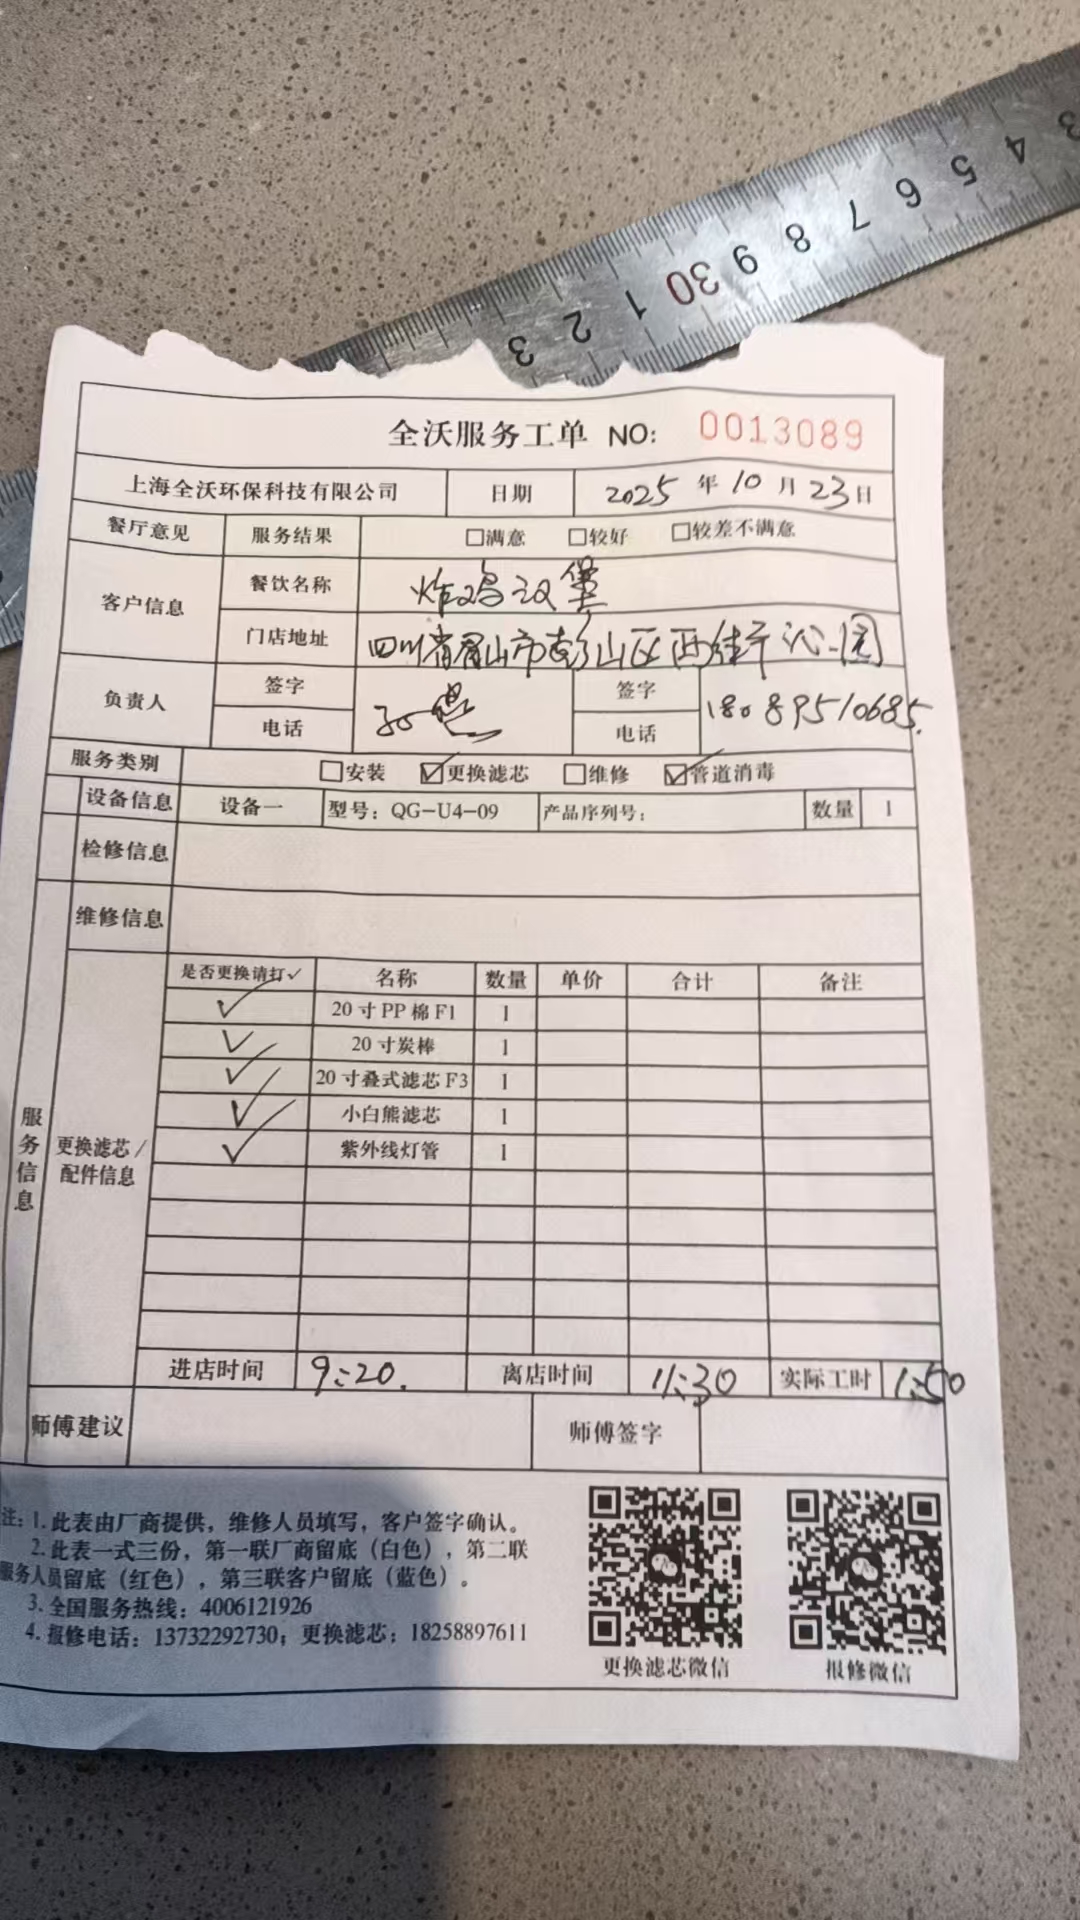 3 4 5 6 7 8 9 30 1 2 3
全沃服务工单 NO: 0013089
上海全沃环保科技有限公司 日期 2025 年 10 月 23 日
餐厅意见 服务结果 □满意 □较好 □较差不满意
客户信息 餐饮名称 炸鸡汉堡
门店地址 四川省眉山市彭山区西街 沁园
负责人 签字 签字
电话 电话 18089510685.
服务类别 □安装 ☑更换滤芯 □维修 ☑管道消毒
设备信息 设备一 型号：QG-U4-09 产品序列号： 数量 1
检修信息
维修信息
服务信息
更换滤芯/配件信息
是否更换请打✓ 名称 数量 单价 合计 备注
✓ 20寸PP棉F1 1
✓ 20寸炭棒 1
✓ 20寸叠式滤芯F3 1
✓ 小白熊滤芯 1
✓ 紫外线灯管 1
进店时间 9:20. 离店时间 11:30 实际工时 1:50
师傅建议 师傅签字
注：1.此表由厂商提供，维修人员填写，客户签字确认。
2.此表一式三份，第一联厂商留底（白色），第二联
服务人员留底（红色），第三联客户留底（蓝色）。
3.全国服务热线：4006121926
4.报修电话：13732292730；更换滤芯：18258897611
更换滤芯微信 报修微信